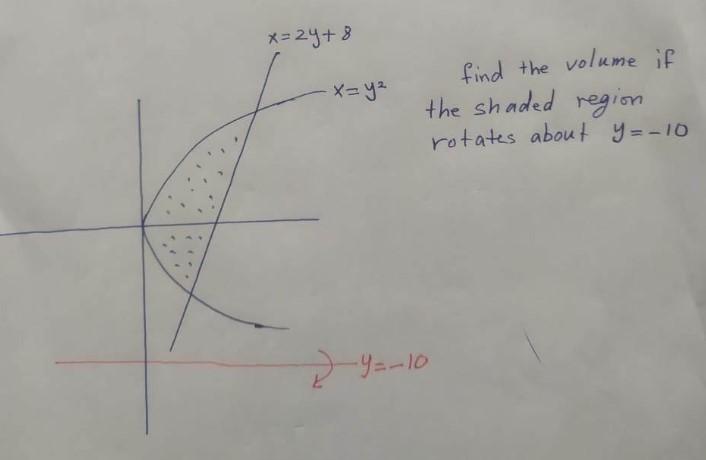 x=2y+8
x=y²
find the volume if
the shaded region
rotates about y=-10
y=-10